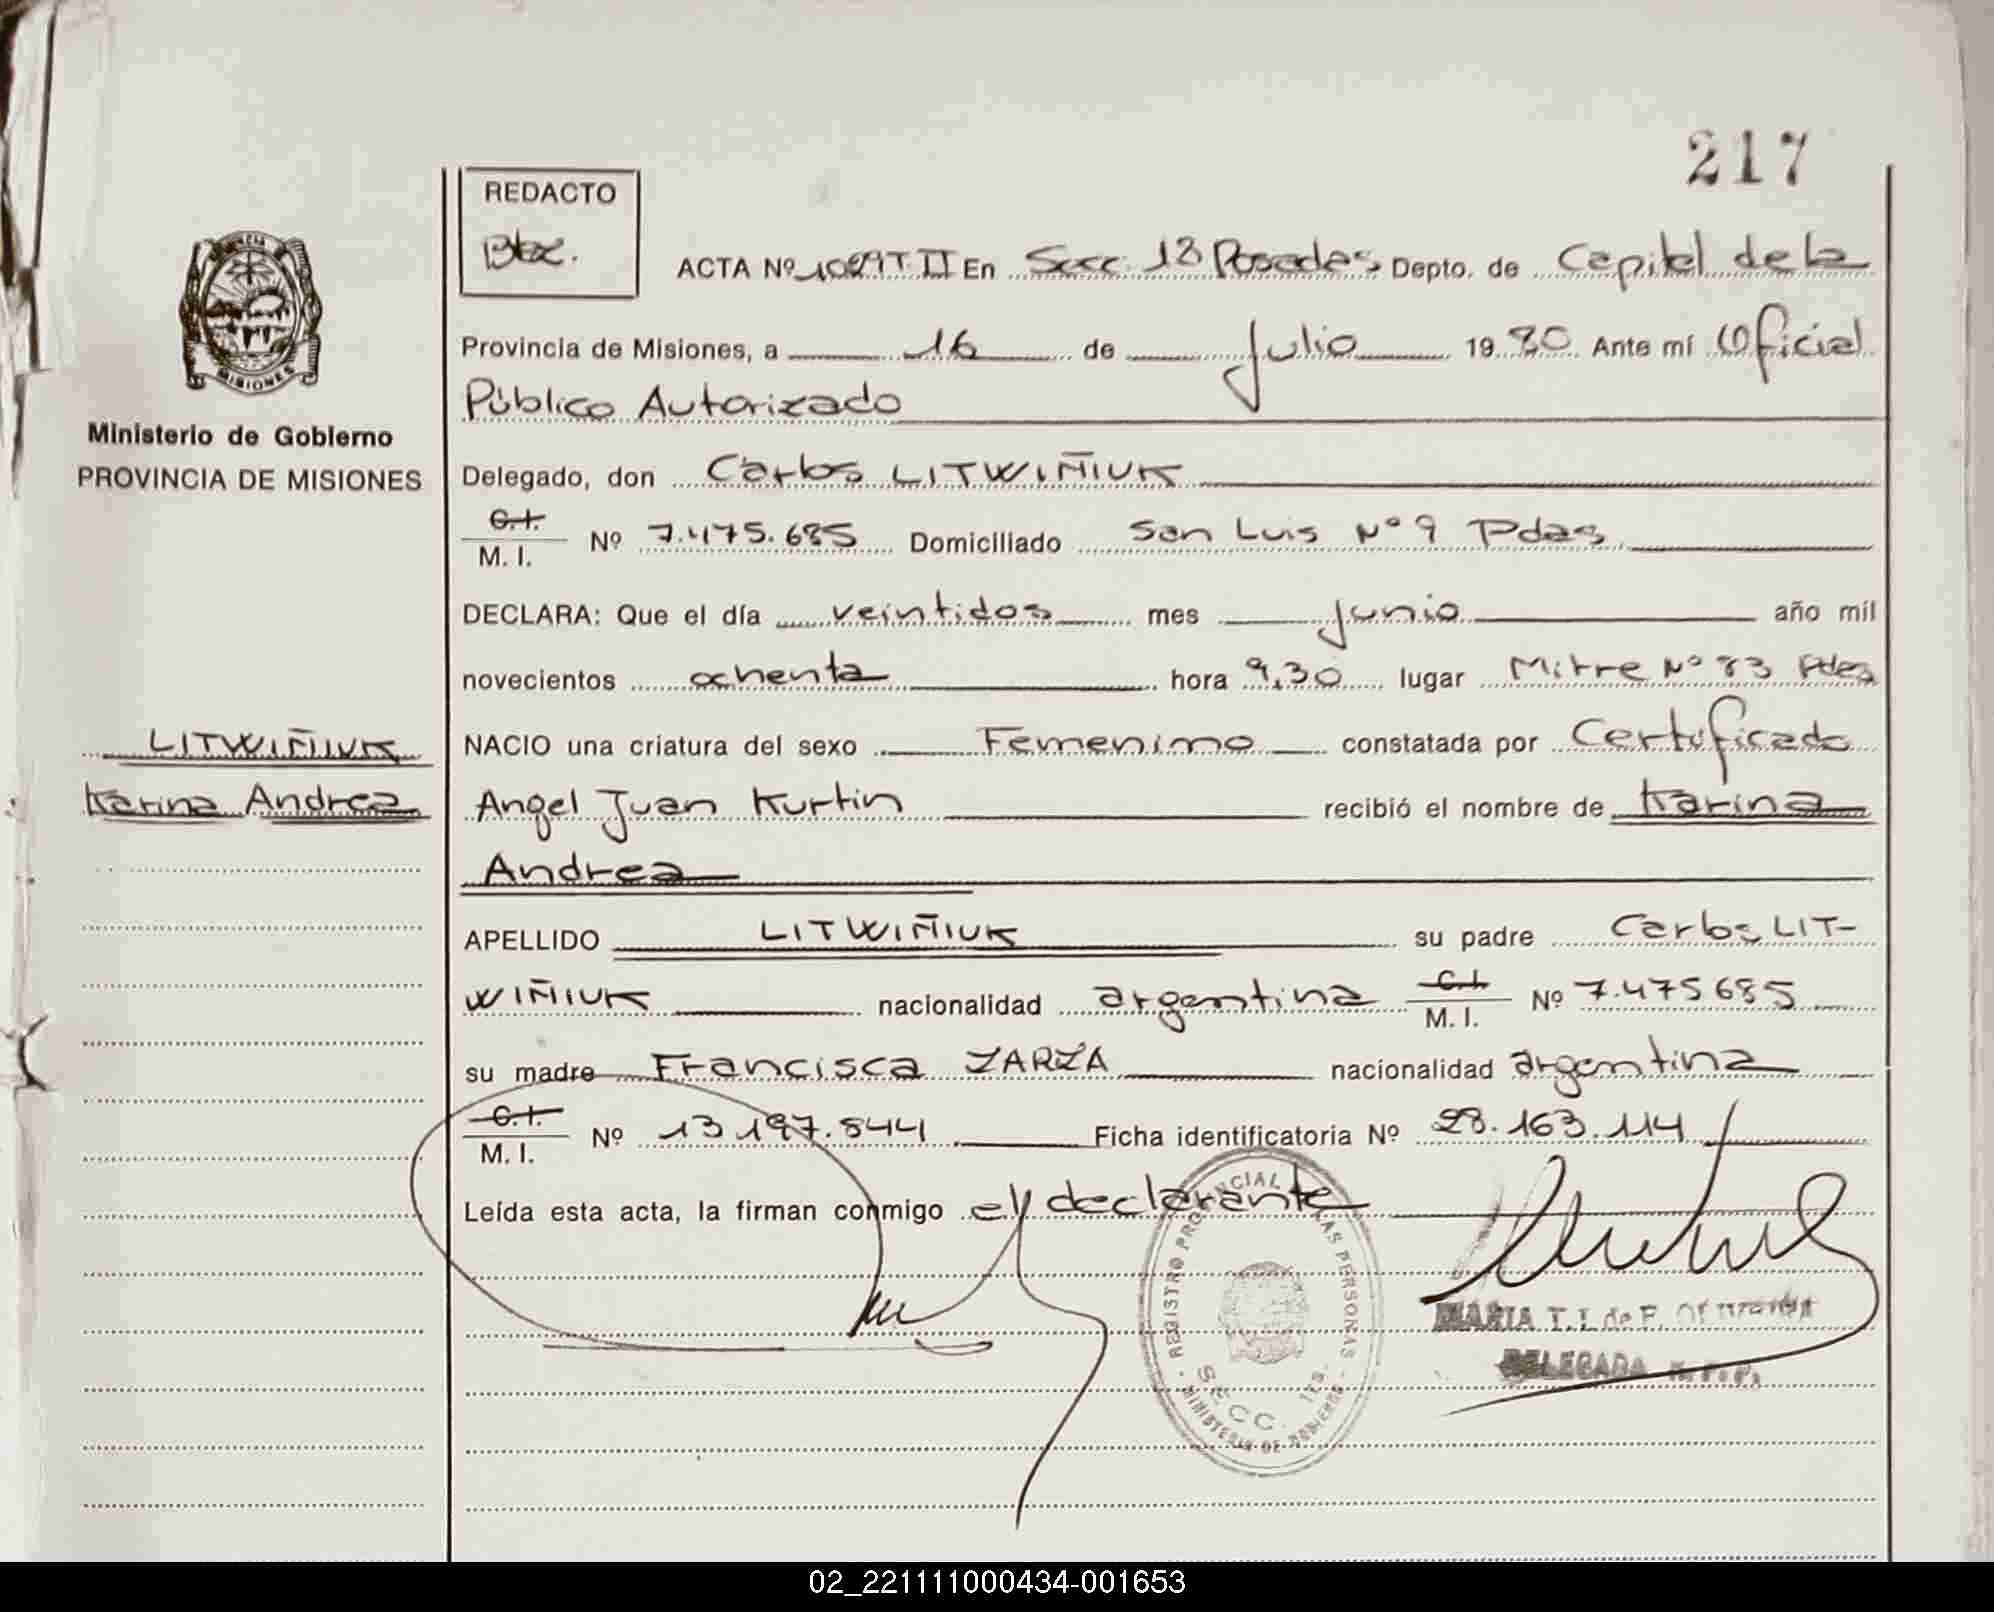 217
REDACTO
Btz.
ACTA Nº 1029 T II En Secc. 13 Posadas Depto. de Capital de la
Provincia de Misiones, a 16 de Julio 1980 Ante mí Oficial
Público Autorizado
Ministerio de Gobierno
PROVINCIA DE MISIONES
Delegado, don Carlos LITWIÑIUK
C.I.
M. I. Nº 7.475.685 Domiciliado San Luis Nº 9 Pdas
DECLARA: Que el día veintidos mes junio año mil
novecientos ochenta hora 9,30 lugar Mitre Nº 83 Pdas
LITWIÑIUK
Karina Andrea
NACIO una criatura del sexo Femenino constatada por Certificado
Angel Juan Kurtin recibió el nombre de Karina
Andrea
APELLIDO LITWIÑIUK su padre Carlos LIT-
WIÑIUK nacionalidad argentina C.I. M. I. Nº 7.475685
su madre Francisca ZARZA nacionalidad argentina
C.I.
M. I. Nº 13.197.844 Ficha identificatoria Nº 28.163.114
Leída esta acta, la firman conmigo el declarante
REGISTRO PROVINCIAL LAS PERSONAS
SECC. 
MINISTERIO DE GOBIERNO
MARIA T. I. de F.
DELEGADA R. P. P.
02_221111000434-001653